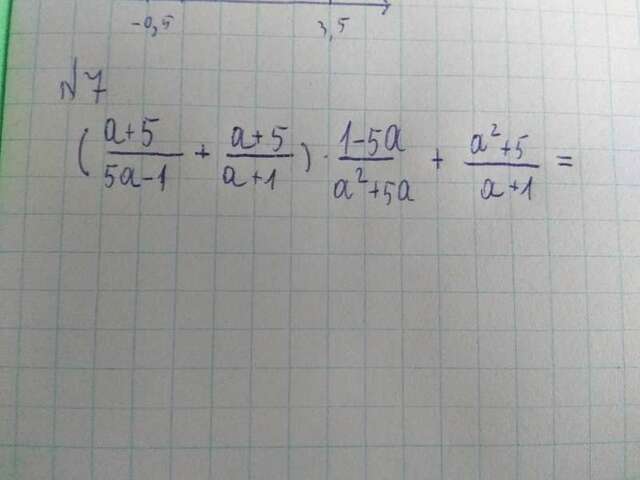 -0,5 3,5
№7
(\frac{a+5}{5a-1} + \frac{a+5}{a+1}) · \frac{1-5a}{a²+5a} + \frac{a²+5}{a+1} =